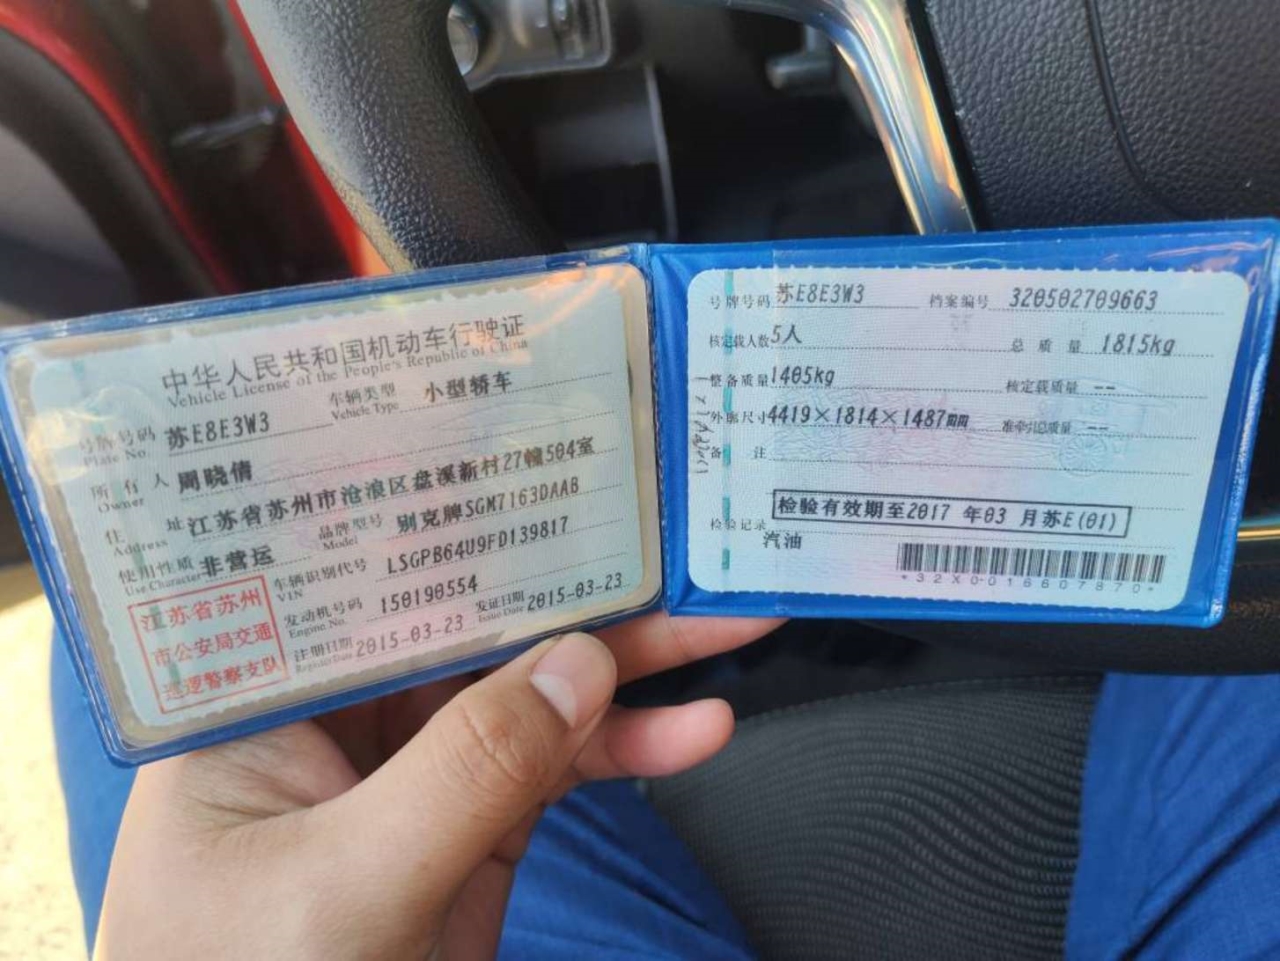 中华人民共和国机动车行驶证
Vehicle License of the People's Republic of China
号牌号码 苏E8E3W3 车辆类型 小型轿车
Plate No. Vehicle Type
所有人 周晓倩
Owner
住址 江苏省苏州市沧浪区盘溪新村27幢504室
Address
使用性质 非营运 品牌型号 别克牌SGM7163DAAB
Use Character Model
车辆识别代号 LSGPB64U9FD139817
VIN
发动机号码 150190554
Engine No.
注册日期 2015-03-23 发证日期 2015-03-23
Register Date Issue Date
江苏省苏州
市公安局交通
巡逻警察支队
号牌号码 苏E8E3W3 档案编号 320502709663
核定载人数 5人 总质量 1815kg
整备质量 1405kg 核定载质量 --
外廓尺寸 4419×1814×1487mm 准牵引总质量 --
备注
检验有效期至2017 年03 月苏E(01)
检验记录
汽油
*32X0016607870*